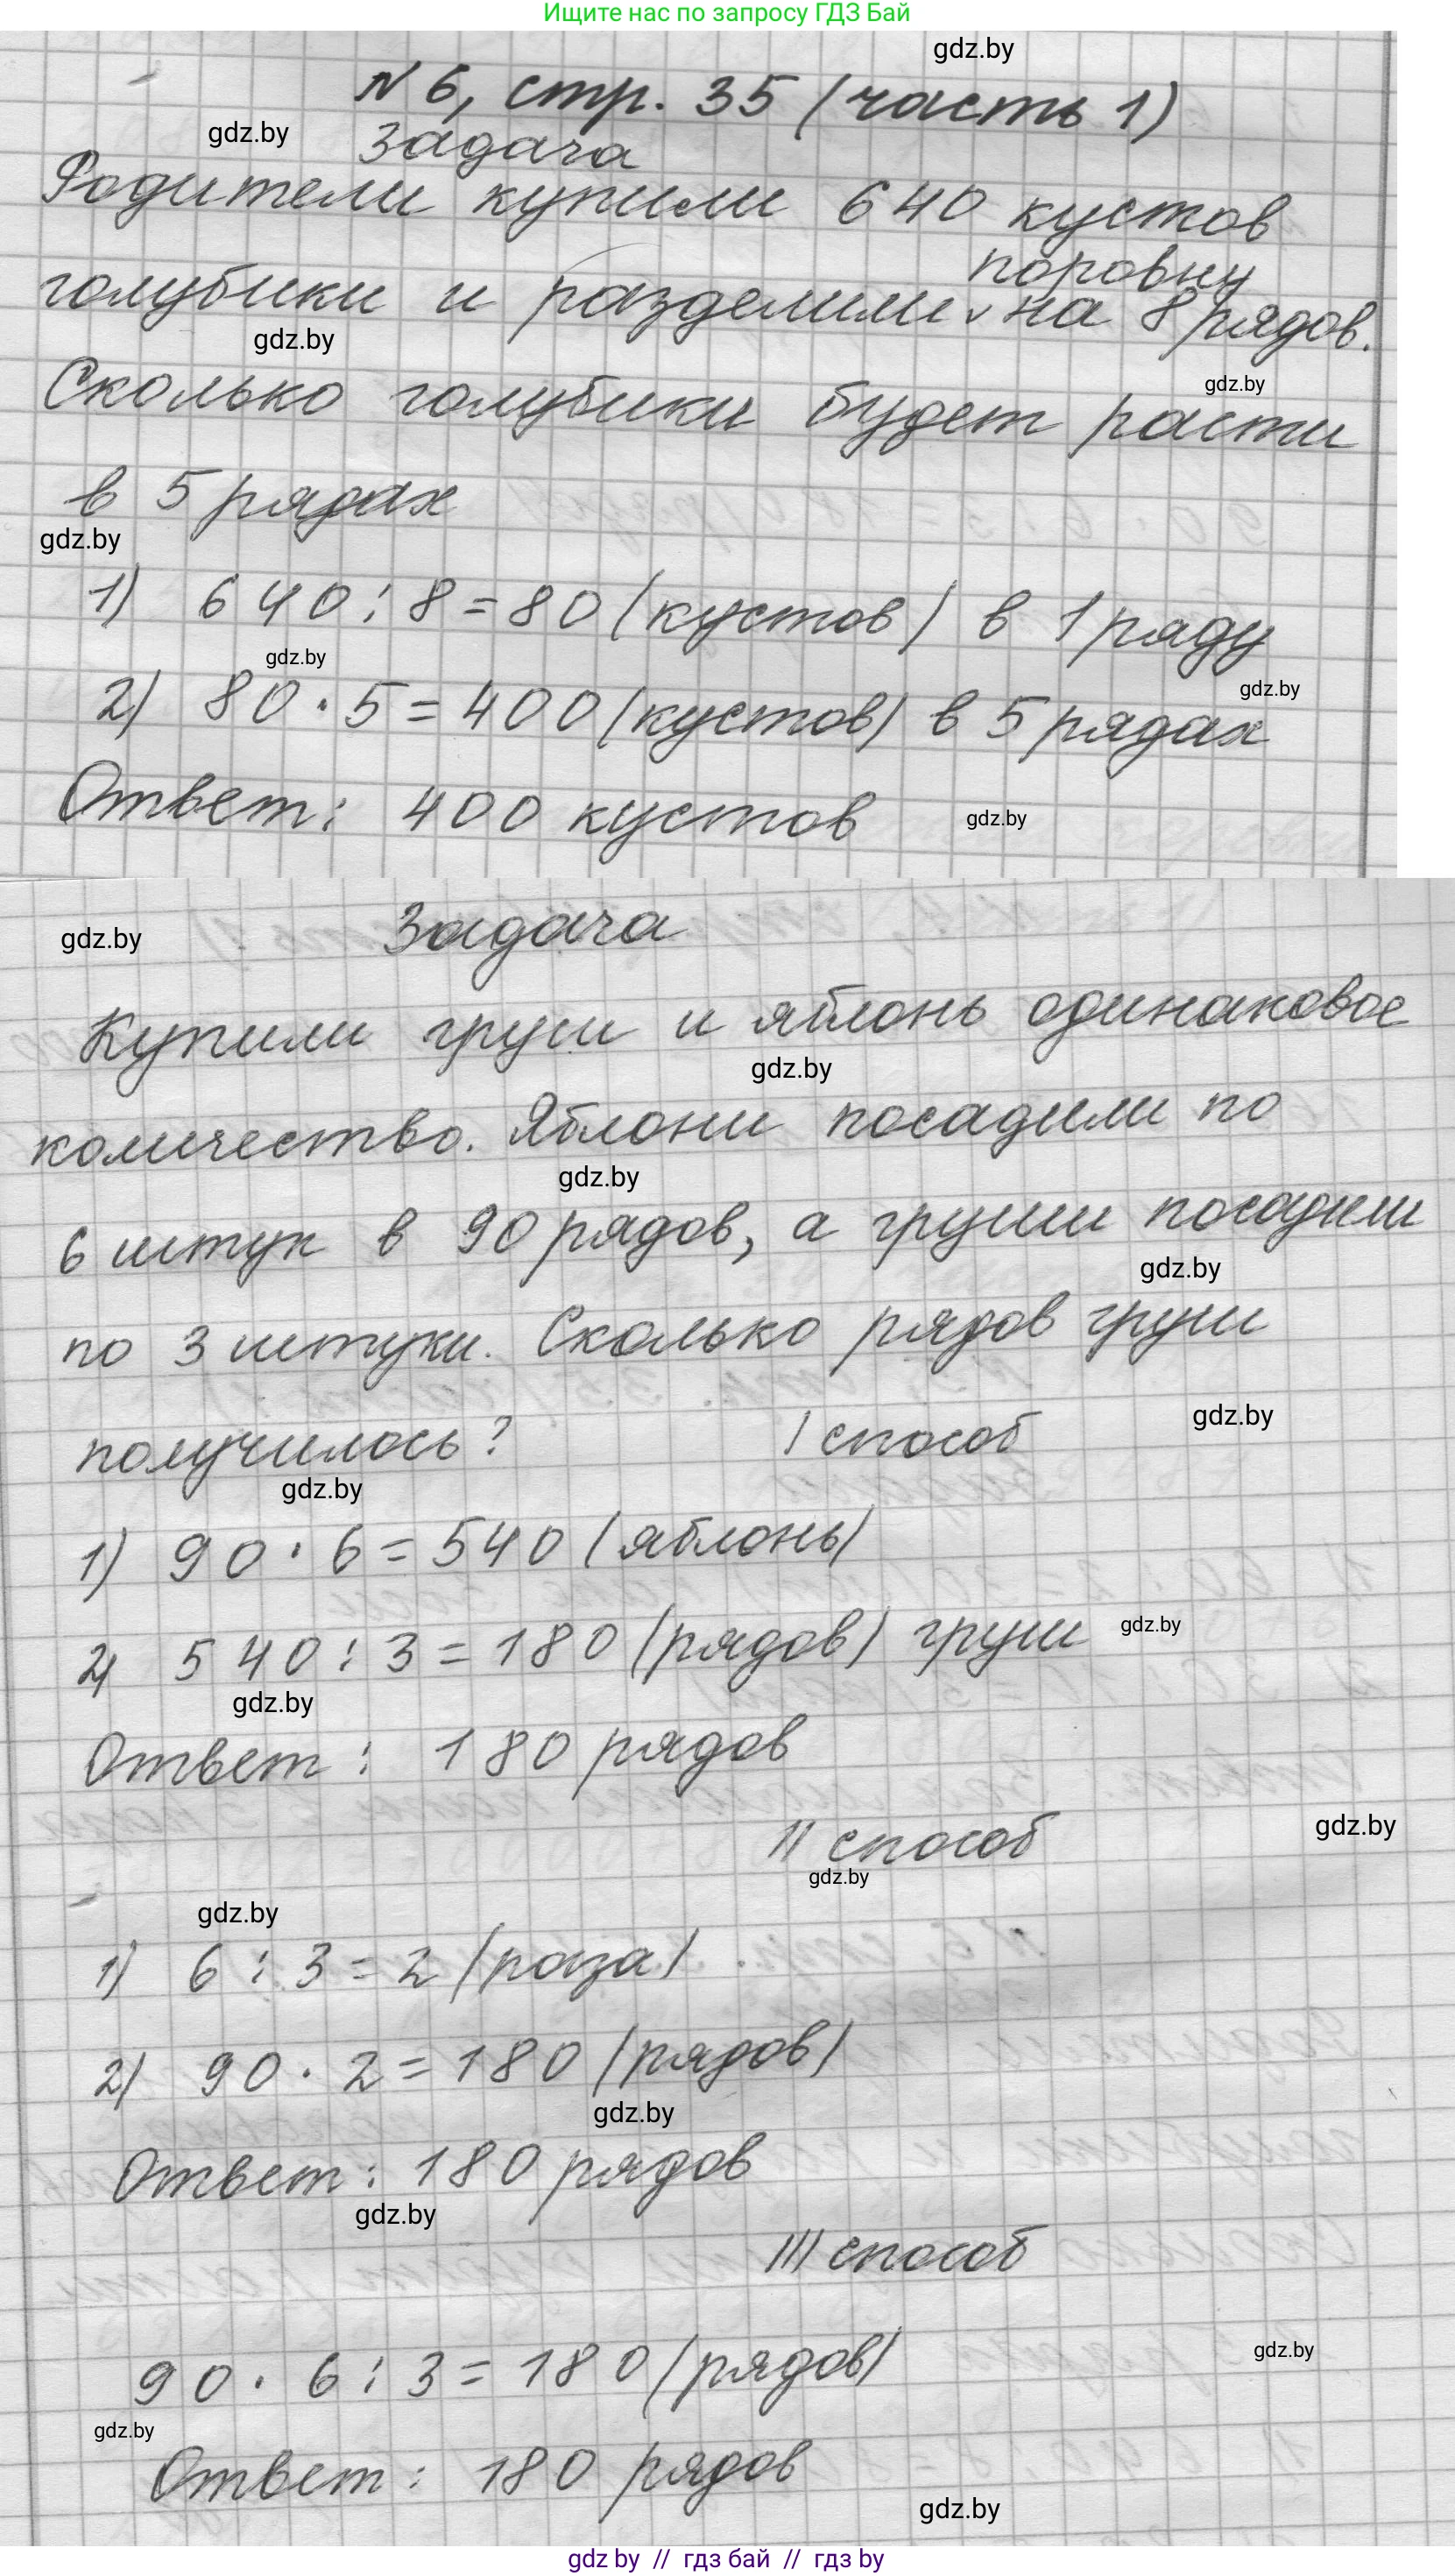 Ищите нас по запросу ГДЗ Бай
gdz.by
N 6, стр. 35 (часть 1)
gdz.by
Задача
Родители купили 640 кустов
поровну
голубики и разделили v на 8 рядов.
gdz.by
gdz.by
Сколько голубики будет расти
в 5 рядах
gdz.by
1) 640 : 8 = 80 (кустов) в 1 ряду
gdz.by
gdz.by
2) 80 · 5 = 400 (кустов) в 5 рядах
Ответ: 400 кустов
gdz.by
gdz.by
Задача
Купили груш и яблонь одинаковое
gdz.by
количество. Яблони посадили по
gdz.by
6 штук в 90 рядов, а груши посадили
gdz.by
по 3 штуки. Сколько рядов груш
gdz.by
получилось? I способ
gdz.by
1) 90 · 6 = 540 (яблонь)
gdz.by
2) 540 : 3 = 180 (рядов) груш
gdz.by
Ответ: 180 рядов
gdz.by
II способ
gdz.by
gdz.by
1) 6 : 3 = 2 (раза)
2) 90 · 2 = 180 (рядов)
gdz.by
Ответ: 180 рядов
gdz.by
III способ
gdz.by
90 · 6 : 3 = 180 (рядов)
gdz.by
Ответ: 180 рядов
gdz.by
gdz by // гдз бай // гдз by